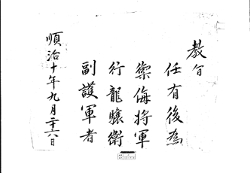 教旨
任有後為
禦侮將軍
行龍驤衛
副護軍者
順治十年九月二十六日